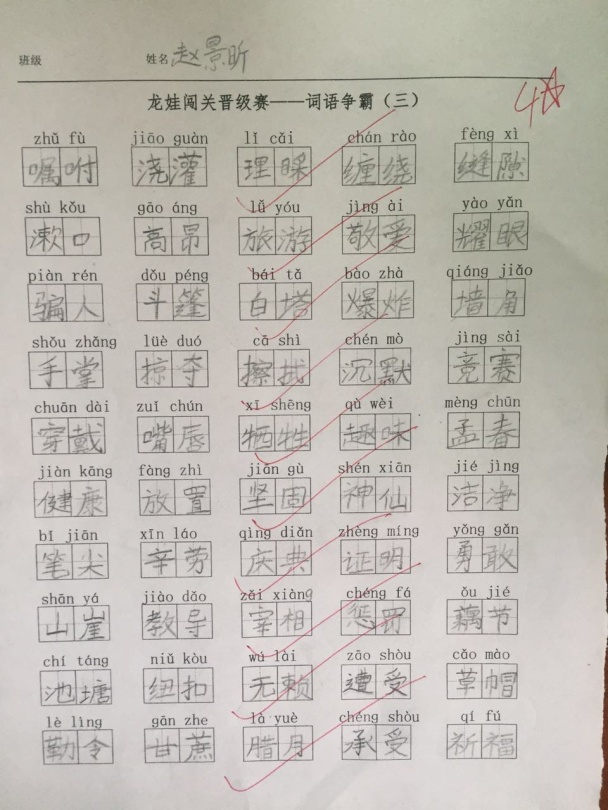 班级 姓名 赵景昕
龙娃闯关晋级赛——词语争霸(三)
4
zhǔ fù jiāo guàn lǐ cǎi chán rào fèng xì
嘱咐 浇灌 理睬 缠绕 缝隙
shù kǒu gāo áng lǚ yóu jìng ài yào yǎn
漱口 高昂 旅游 敬爱 耀眼
piàn rén dǒu péng bái tǎ bào zhà qiáng jiǎo
骗人 斗篷 白塔 爆炸 墙角
shǒu zhǎng lüè duó cā shì chén mò jìng sài
手掌 掠夺 擦拭 沉默 竞赛
chuān dài zuǐ chún xī shēng qù wèi mèng chūn
穿戴 嘴唇 牺牲 趣味 孟春
jiàn kāng fàng zhì jiān gù shén xiān jié jìng
健康 放置 坚固 神仙 洁净
bǐ jiān xīn láo qìng diǎn zhèng míng yǒng gǎn
笔尖 辛劳 庆典 证明 勇敢
shān yá jiào dǎo zǎi xiàng chéng fá ǒu jié
山崖 教导 宰相 惩罚 藕节
chí táng niǔ kòu wú lài zāo shòu cǎo mào
池塘 纽扣 无赖 遭受 草帽
lè lìng gān zhe là yuè chéng shòu qí fú
勒令 甘蔗 腊月 承受 祈福